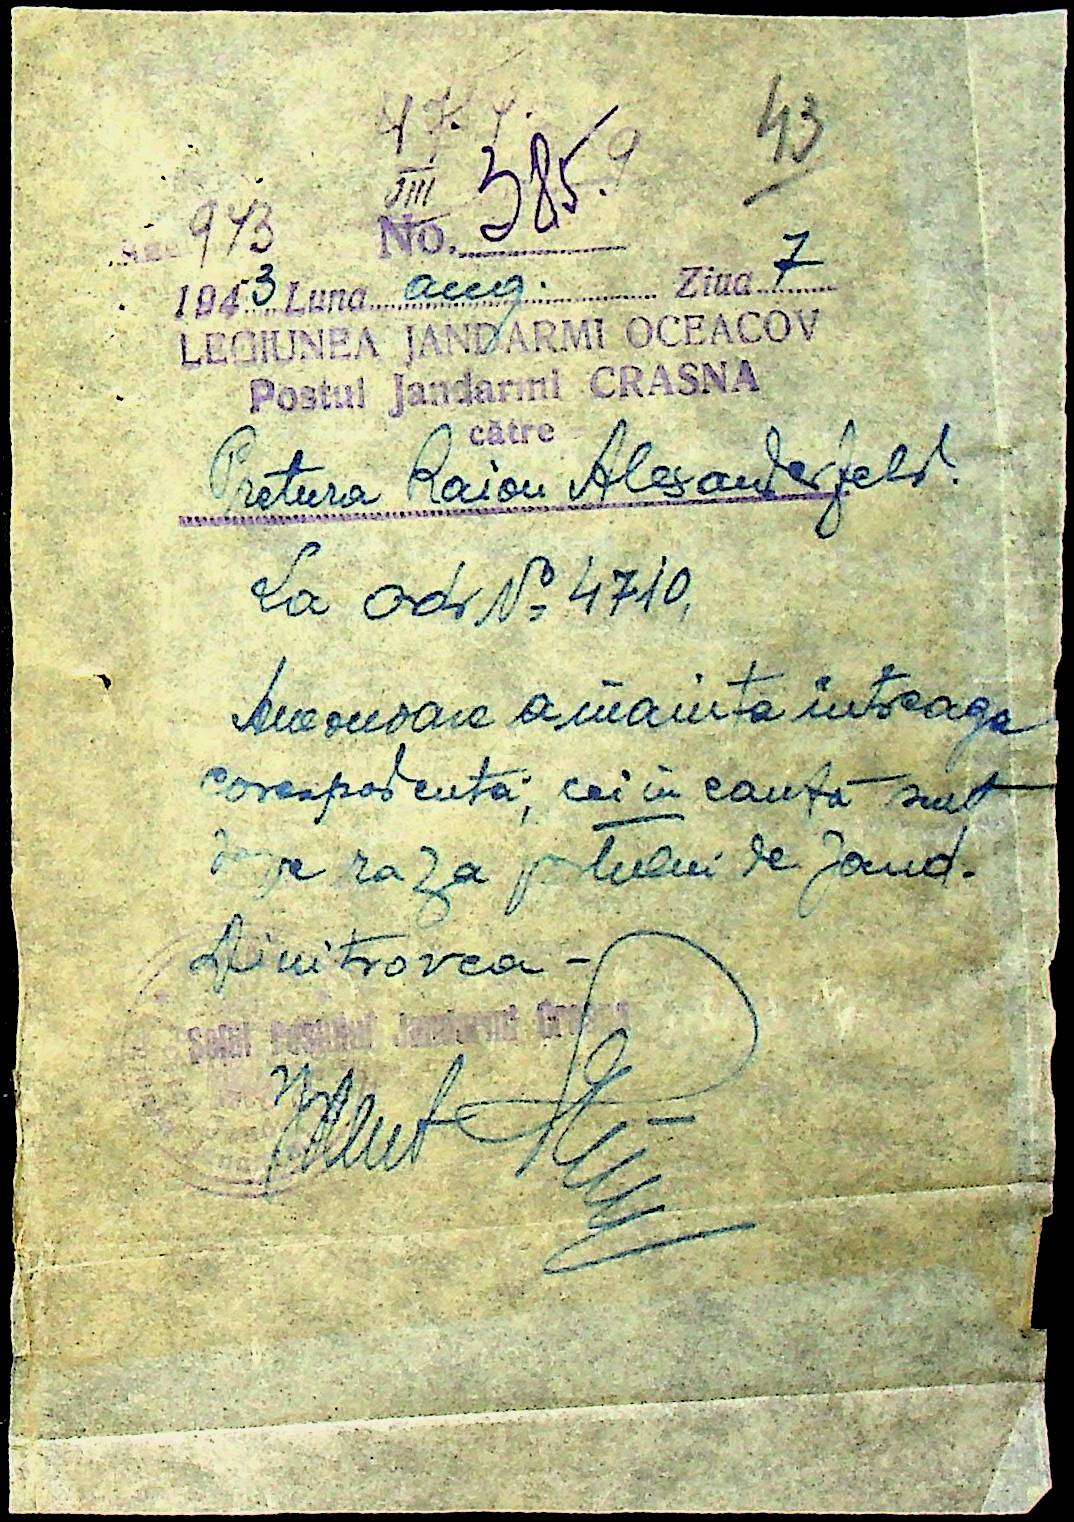 43
943
VIII
No. 385.
1943 Luna aug. Ziua 7
LEGIUNEA JANDARMI OCEACOV
Postul Jandarmi CRASNA
către
Pretura Raion Alexanderfeld.
La ordr No 4710,
a înainta întreaga
corespodenta, cei in cauză sunt
pe raza p tului de Jand.
Dimitrovca -
Seful Postului Jandarmi Crasna